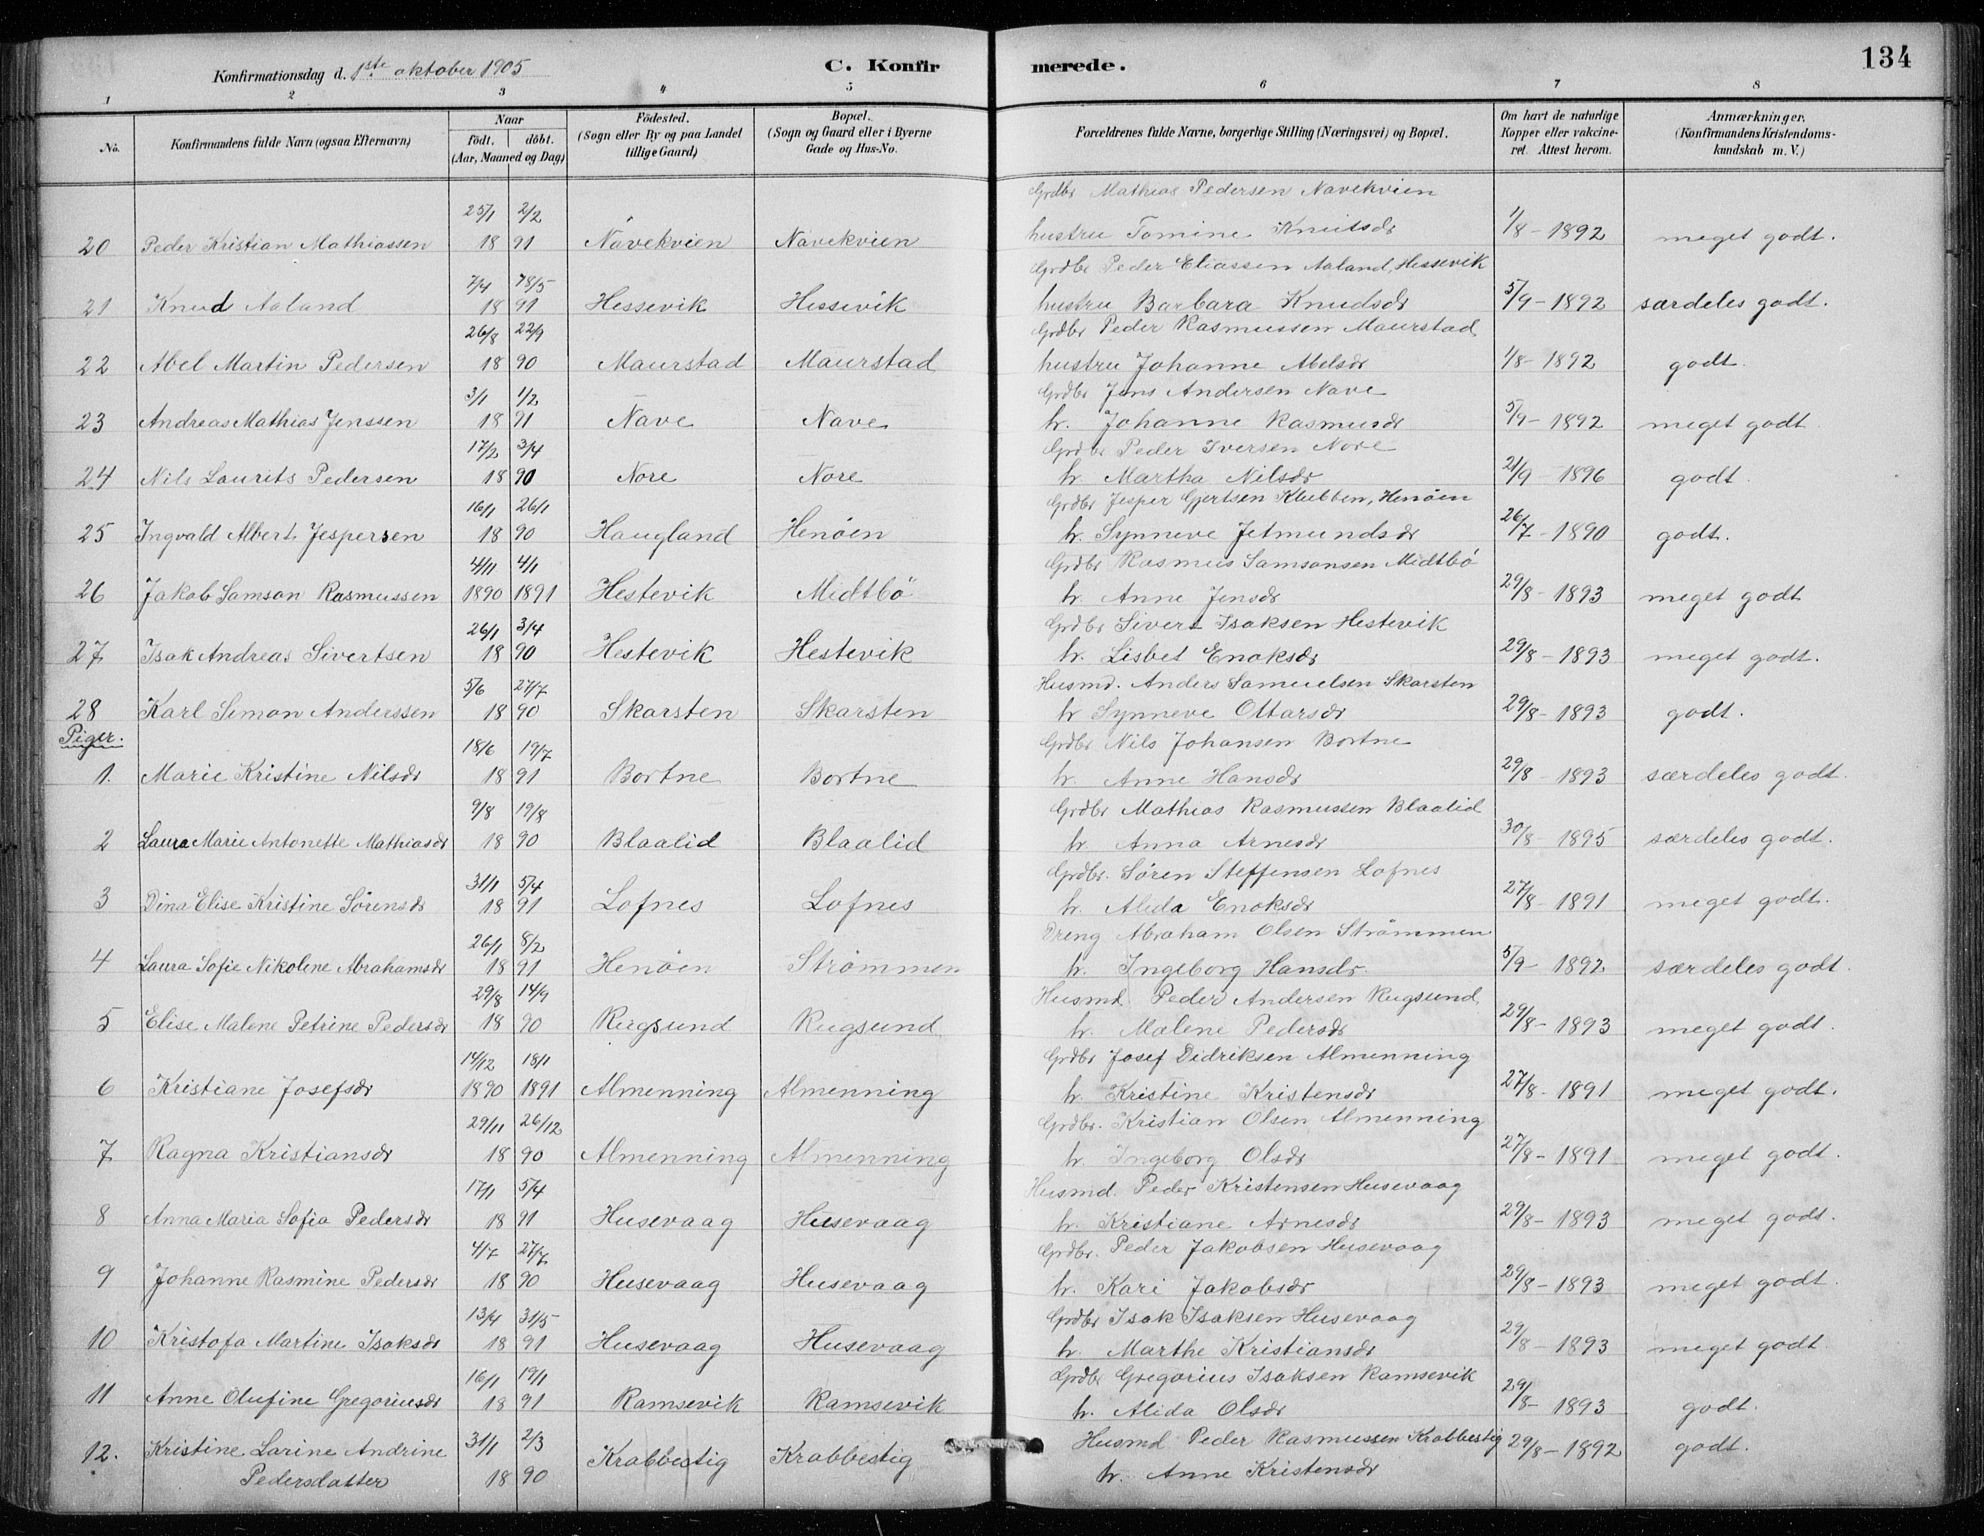 134
Konfirmationsdag d. 1ste oktober 1905 C. Konfirmerede.
1 2 3 4 5 6 7 8
No. Konfirmandens fulde Navn (ogsaa Efternavn) Naar födt. döbt. (Aar, Maaned og Dag) Födested. (Sogn eller By og paa Landet tillige Gaard) Bopæl. (Sogn og Gaard eller i Byerne Gade og Hus-No. Forældrenes fulde Navne, borgerlige Stilling (Næringsvei) og Bopæl. Om havt de naturlige Kopper eller vakcineret. Attest herom. Anmærkninger. (Konfirmandens Kristendomskundskab m. V.)
25/1 2/2 Grdbr Mathias Pedersen Navekvien
20 Peder Kristian Mathiassen 18 91 Navekvien Navekvien hustru Tomine Knutsdr 1/8 - 1892 meget godt.
7/4 78/5 Grdbr Peder Eliassen Aaland, Hessevik
21 Knud Aaland 18 91 Hessevik Hessevik hustru Barbara Knudsdr 5/9 - 1892 særdeles godt.
26/8 22/9 Grdbr Peder Rasmussen Maurstad
22 Abel Martin Pedersen 18 90 Maurstad Maurstad hustru Johanne Abelsdr 1/8 - 1892 godt.
3/1 1/2 Grdbr Jens Andersen Nave
23 Andreas Mathias Jenssen 18 91 Nave Nave h. Johanne Rasmusdr 5/9 - 1892 meget godt.
17/2 3/4 Grdbr Peder Iversen Nore
24 Nils Laurits Pedersen 18 90 Nore Nore h. Martha Nilsdr 21/9 - 1896 godt.
16/1 26/1 Grdbr Jesper Gjertsen Klubben, Henöen
25 Ingvald Albert Jespersen 18 90 Haugland Henöen h. Synneve Jetmundsdr 26/7 - 1890 godt.
4/11 4/1 Grdbr Rasmus Samsonsen Midtbö
26 Jakob Samson Rasmussen 1890 1891 Hestevik Midtbö h. Anne Jensdr 29/8 - 1893 meget godt
26/1 3/4 Grdbr Sivert Isaksen Hestevik
27 Isak Andreas Sivertsen 18 90 Hestevik Hestevik h. Lisbet Enoksdr 29/8 - 1893 meget godt.
5/6 27/7 Husmd. Anders Samuelsen Skarsten
28 Karl Simon Anderssen 18 90 Skarsten Skarsten h Synneve Ottarsdr 29/8 - 1893 godt.
Piger.
18/6 19/7 Grdbr Nils Johansen Bortne
1. Marie Kristine Nilsdr 18 91 Bortne Bortne h. Anne Hansdr 29/8 - 1893 særdeles godt.
9/8 19/8 Grdbr Mathias Rasmussen Blaalid
2 Laura Marie Antonette Mathiasdr 18 90 Blaalid Blaalid h. Anna Arnesdr 30/8 - 1895 særdeles godt.
31/1 5/4 Grdbr. Sören Steffensen Lofnes
3 Dina Elise Kristine Sörensdr 18 91 Lofnes Lofnes h. Alida Enoksdr 27/8 - 1891 meget godt.
26/1 8/2 Dreng Abraham Olsen Strömmen
4 Laura Sofie Nikoline Abrahamsdr 18 91 Henöen Strömmen h. Ingeborg Hansdr. 5/9 - 1892 særdeles godt.
29/8 14/9 Husmd. Peder Andersen Rugsund
5 Elise Malene Petrine Pedersdr 18 90 Rugsund Rugsund h. Malene Pedersdr 29/8 - 1893 meget godt.
14/12 18/1 Grdbr Josef Didriksen Almenning
6 Kristiane Josefsdr 1890 1891 Almenning Almenning h. Kristine Kristensdr 27/8 - 1891 meget godt.
29/11 26/12 Grdbr. Kristian Olsen Almenning
7 Ragna Kristiansdr 18 90 Almenning Almenning h. Ingeborg Olsdr 27/8 - 1891 meget godt.
17/1 5/4 Husmd. Peder Kristensen Husevaag
8 Anna Maria Sofia Pedersdr 18 91 Husevaag Husevaag h. Kristiane Arnesdr 29/8 - 1893 meget godt.
4/7 27/7 Grdbr. Peder Jakobsen Husevaag
9 Johanne Rasmine Pedersdr 18 90 Husevaag Husevaag h. Kari Jakobsdr 29/8 - 1893 meget godt.
13/4 31/5 Grdbr Isak Isaksen Husevaag
10 Kristofa Martine Isaksdr 18 91 Husevaag Husevaag h. Marthe Kristiansdr 29/8 - 1893 meget godt.
16/1 19/1 Grdbr Gregorius Isaksen Ramsevik
11 Anne Olufine Gregoriusdr 18 91 Ramsevik Ramsevik h. Alida Olsdr 29/8 - 1893 godt.
31/1 2/3 Husmd Peder Rasmussen Krabbestig
12. Kristine Larine Andrine Krabbestig Krabbestig 29/8 - 1892 godt.
Pedersdatter 18 90 h. Anne Kristensdr